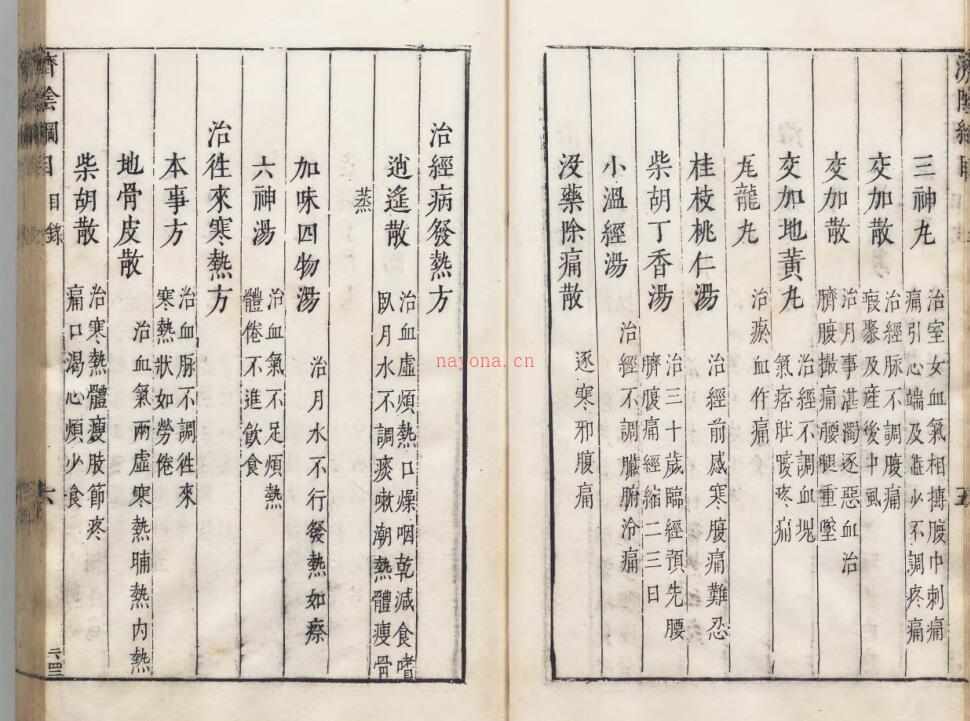 濟陰綱目
五
三神丸
治室女血氣相搏腹中刺痛
痛引心端及經少不調疼痛
交加散
治經脉不調腹痛
瘕聚及産後中風
交加散
治月事湛濁逐惡血治
臍腹撮痛腰腿重墜
交加地黃丸
治經不調血塊
氣痞肚腹疼痛
龙龍丸
治瘀血作痛
桂枝桃仁湯
治經前感寒腹痛難忍
柴胡丁香湯
治三十歲臨經預先腰
臍腹痛經縮二三日
小溫經湯
治經不調臟腑冷痛
沒藥除痛散
逐寒邪腹痛
治經病發熱方
逍遙散
治血虛煩熱口燥咽乾減食嗜
臥月水不調痰嗽潮熱體瘦骨
蒸
加味四物湯
治月水不行發熱如瘵
六神湯
治血氣不足煩熱
體倦不進飲食
治徃來寒熱方
本事方
治血脉不調徃來
寒熱狀如勞倦
地骨皮散
治血氣兩虛寒熱晡熱內熱
柴胡散
治寒熱體瘦肢節疼
痛口渴心煩少食
濟陰綱目
目錄
六
nayona.cn